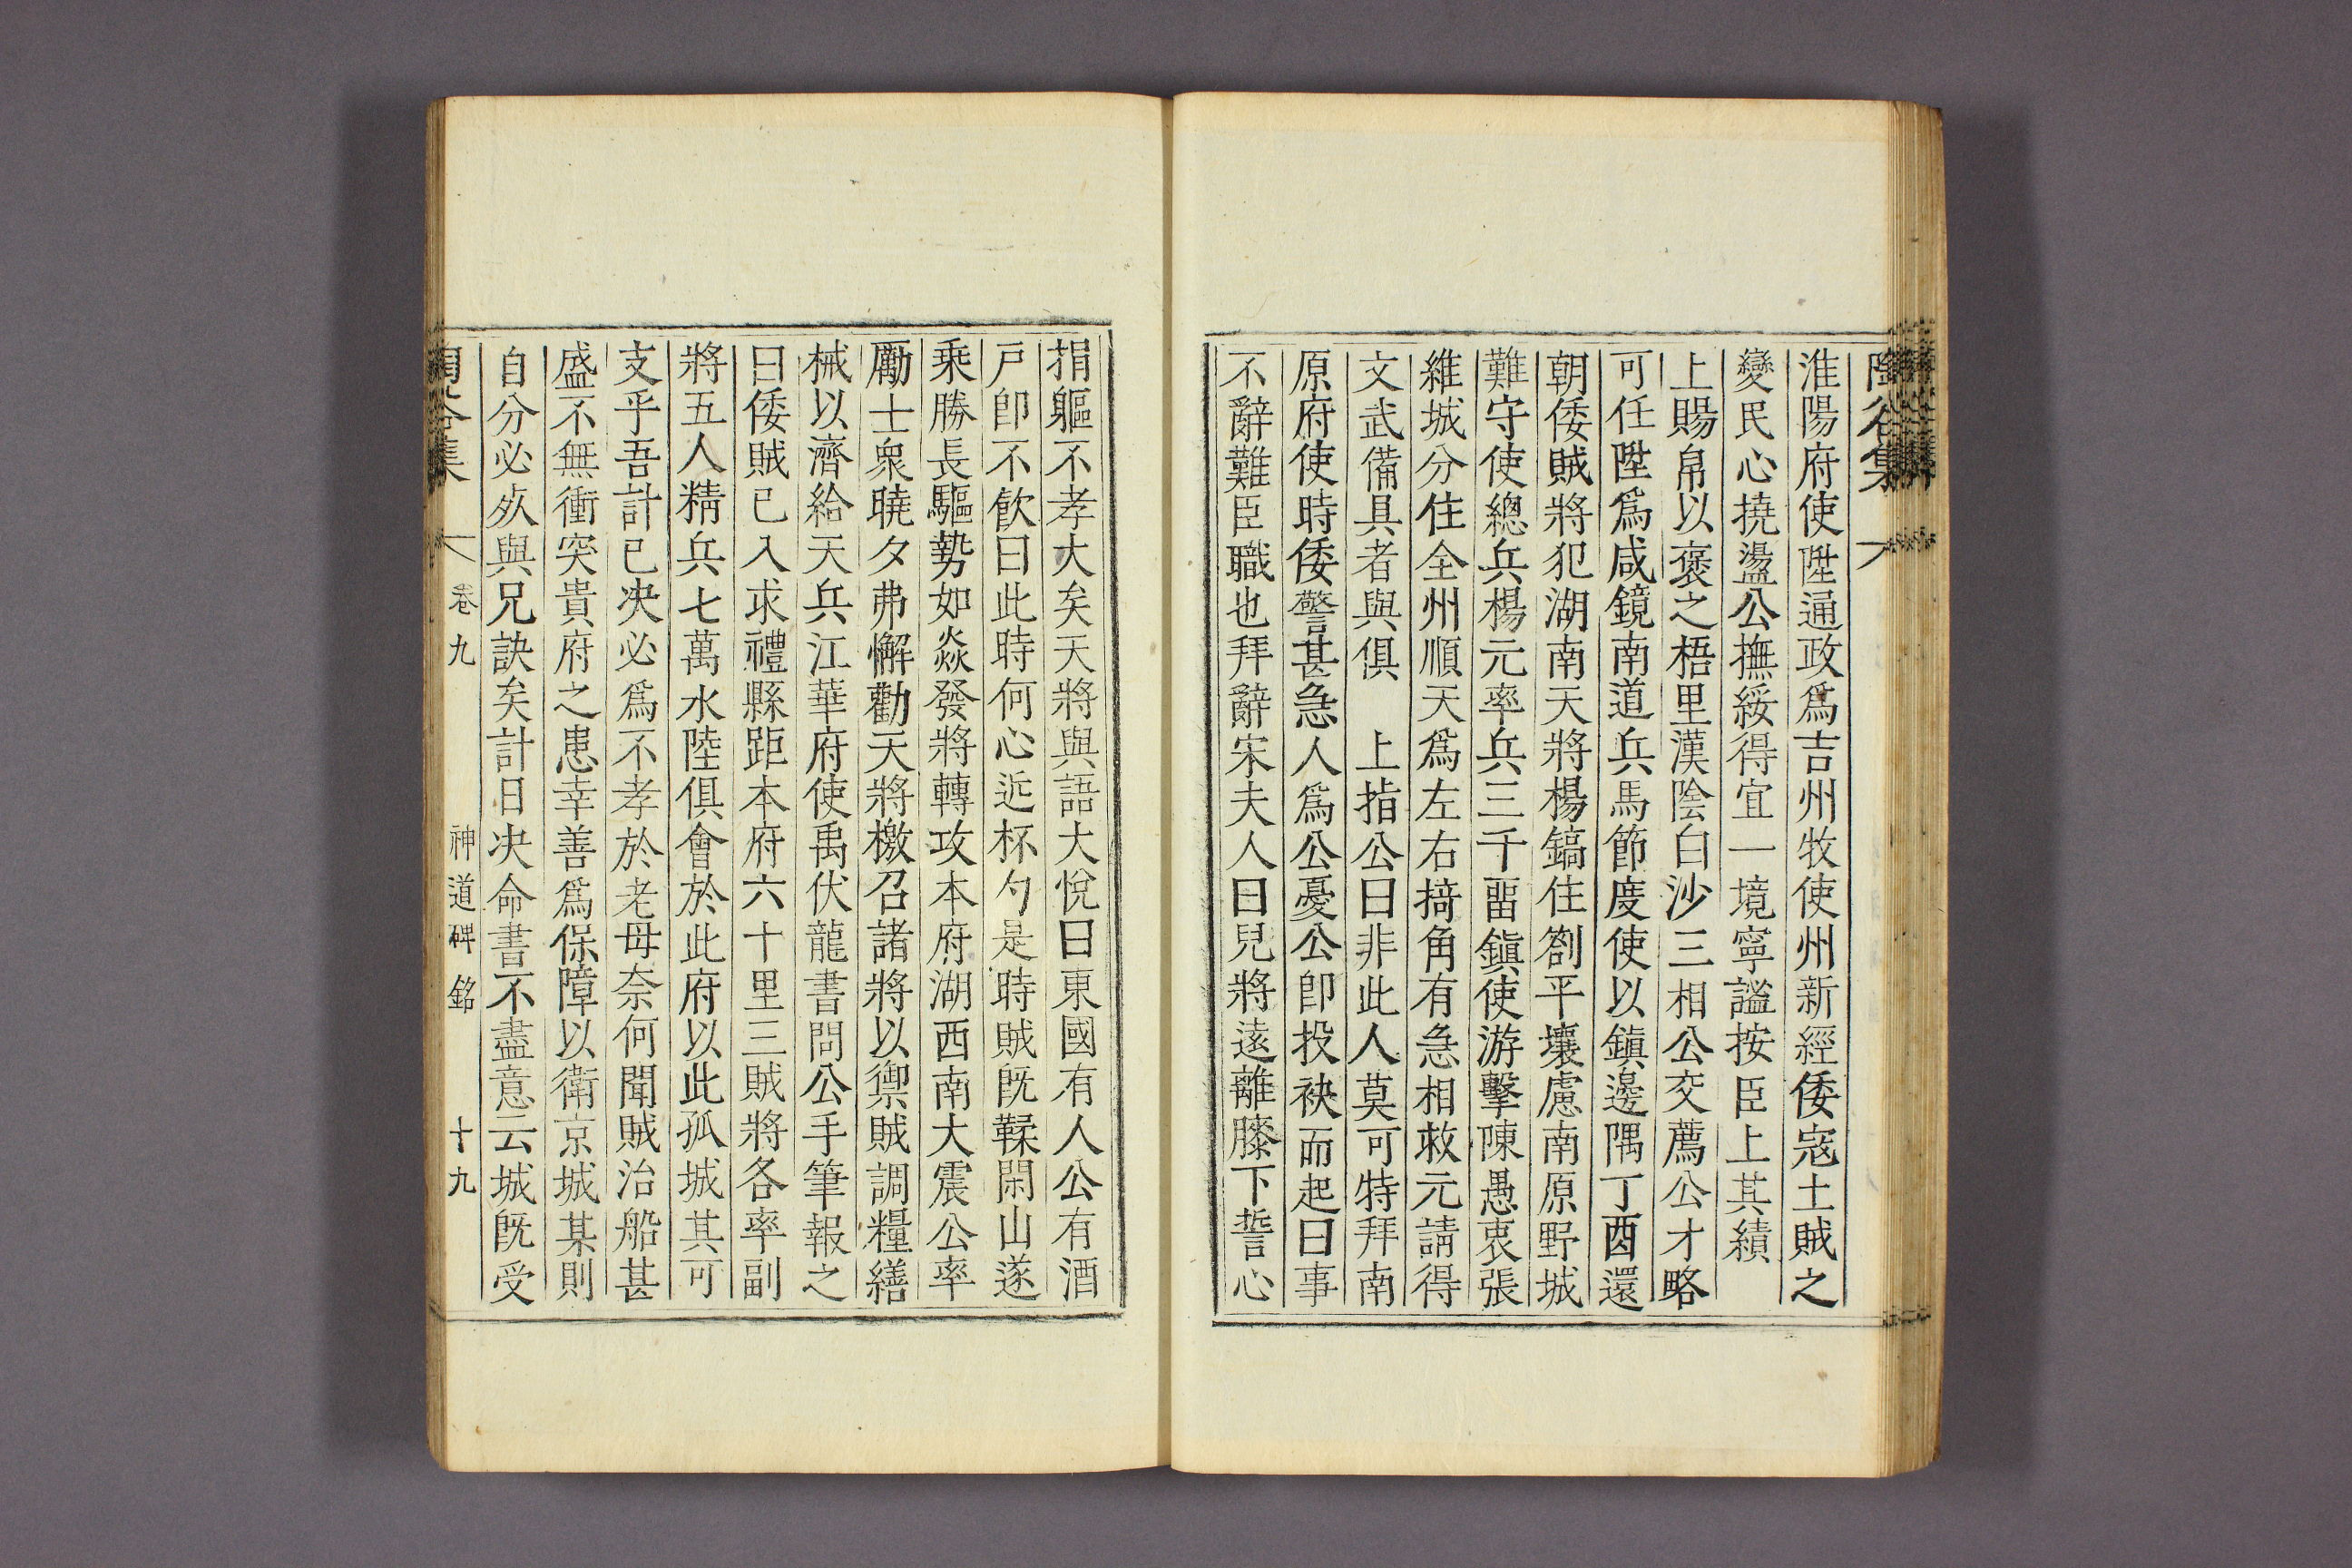 陶谷集
淮陽府使陞通政爲吉州牧使州新經倭寇土賊之
變民心撓盪公撫綏得宜一境寧謐按臣上其績
上賜帛以褒之梧里漢陰白沙三相公交薦公才略
可任陞爲咸鏡南道兵馬節度使以鎭邊隅丁酉還
朝倭賊將犯湖南天將楊鎬住劄平壤慮南原野城
難守使總兵楊元率兵三千畱鎭使游擊陳愚衷張
維城分住全州順天爲左右掎角有急相救元請得
文武備具者與俱 上指公曰非此人莫可特拜南
原府使時倭警甚急人爲公憂公卽投袂而起曰事
不辭難臣職也拜辭宋夫人曰兒將遠離膝下誓心
捐軀不孝大矣天將與語大悅曰東國有人公有酒
戶卽不飮曰此時何心近杯勺是時賊旣鞣閑山遂
乘勝長驅勢如焱發將轉攻本府湖西南大震公率
勵士衆曉夕弗懈勸天將檄召諸將以禦賊調糧繕
械以濟給天兵江華府使禹伏龍書問公手筆報之
曰倭賊已入求禮縣距本府六十里三賊將各率副
將五人精兵七萬水陸俱會於此府以此孤城其可
支乎吾計已决必爲不孝於老母奈何聞賊治船甚
盛不無衝突貴府之患幸善爲保障以衛京城某則
自分必死與兄訣矣計日决命書不盡意云城旣受
陶谷集 卷九 神道碑銘 十九